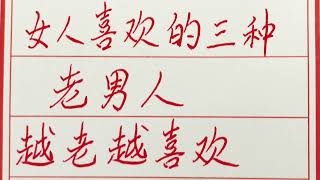 女人喜欢的三种
老男人
越老越喜欢